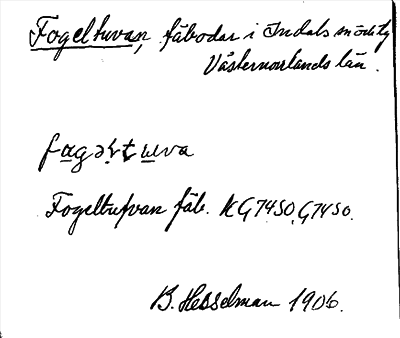 Fogeltuvan, fäbodar i Indals
Västernorrlands län.
fagəłtuva
Fogeltufvan fäb. KG7450, G7450.
B. Hesselman 1906.